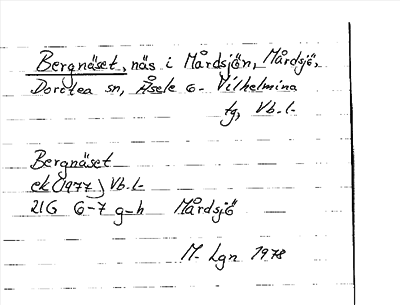 Bergnäset, näs i Mårdsjön, Mårdsjö,
Dorotea sn, Åsele o. Vilhelmina
tg, Vb. l.
Bergnäset
ek (1977) Vb. l.
21G 6-7 g-h Mårdsjö
M. Lgn 1978